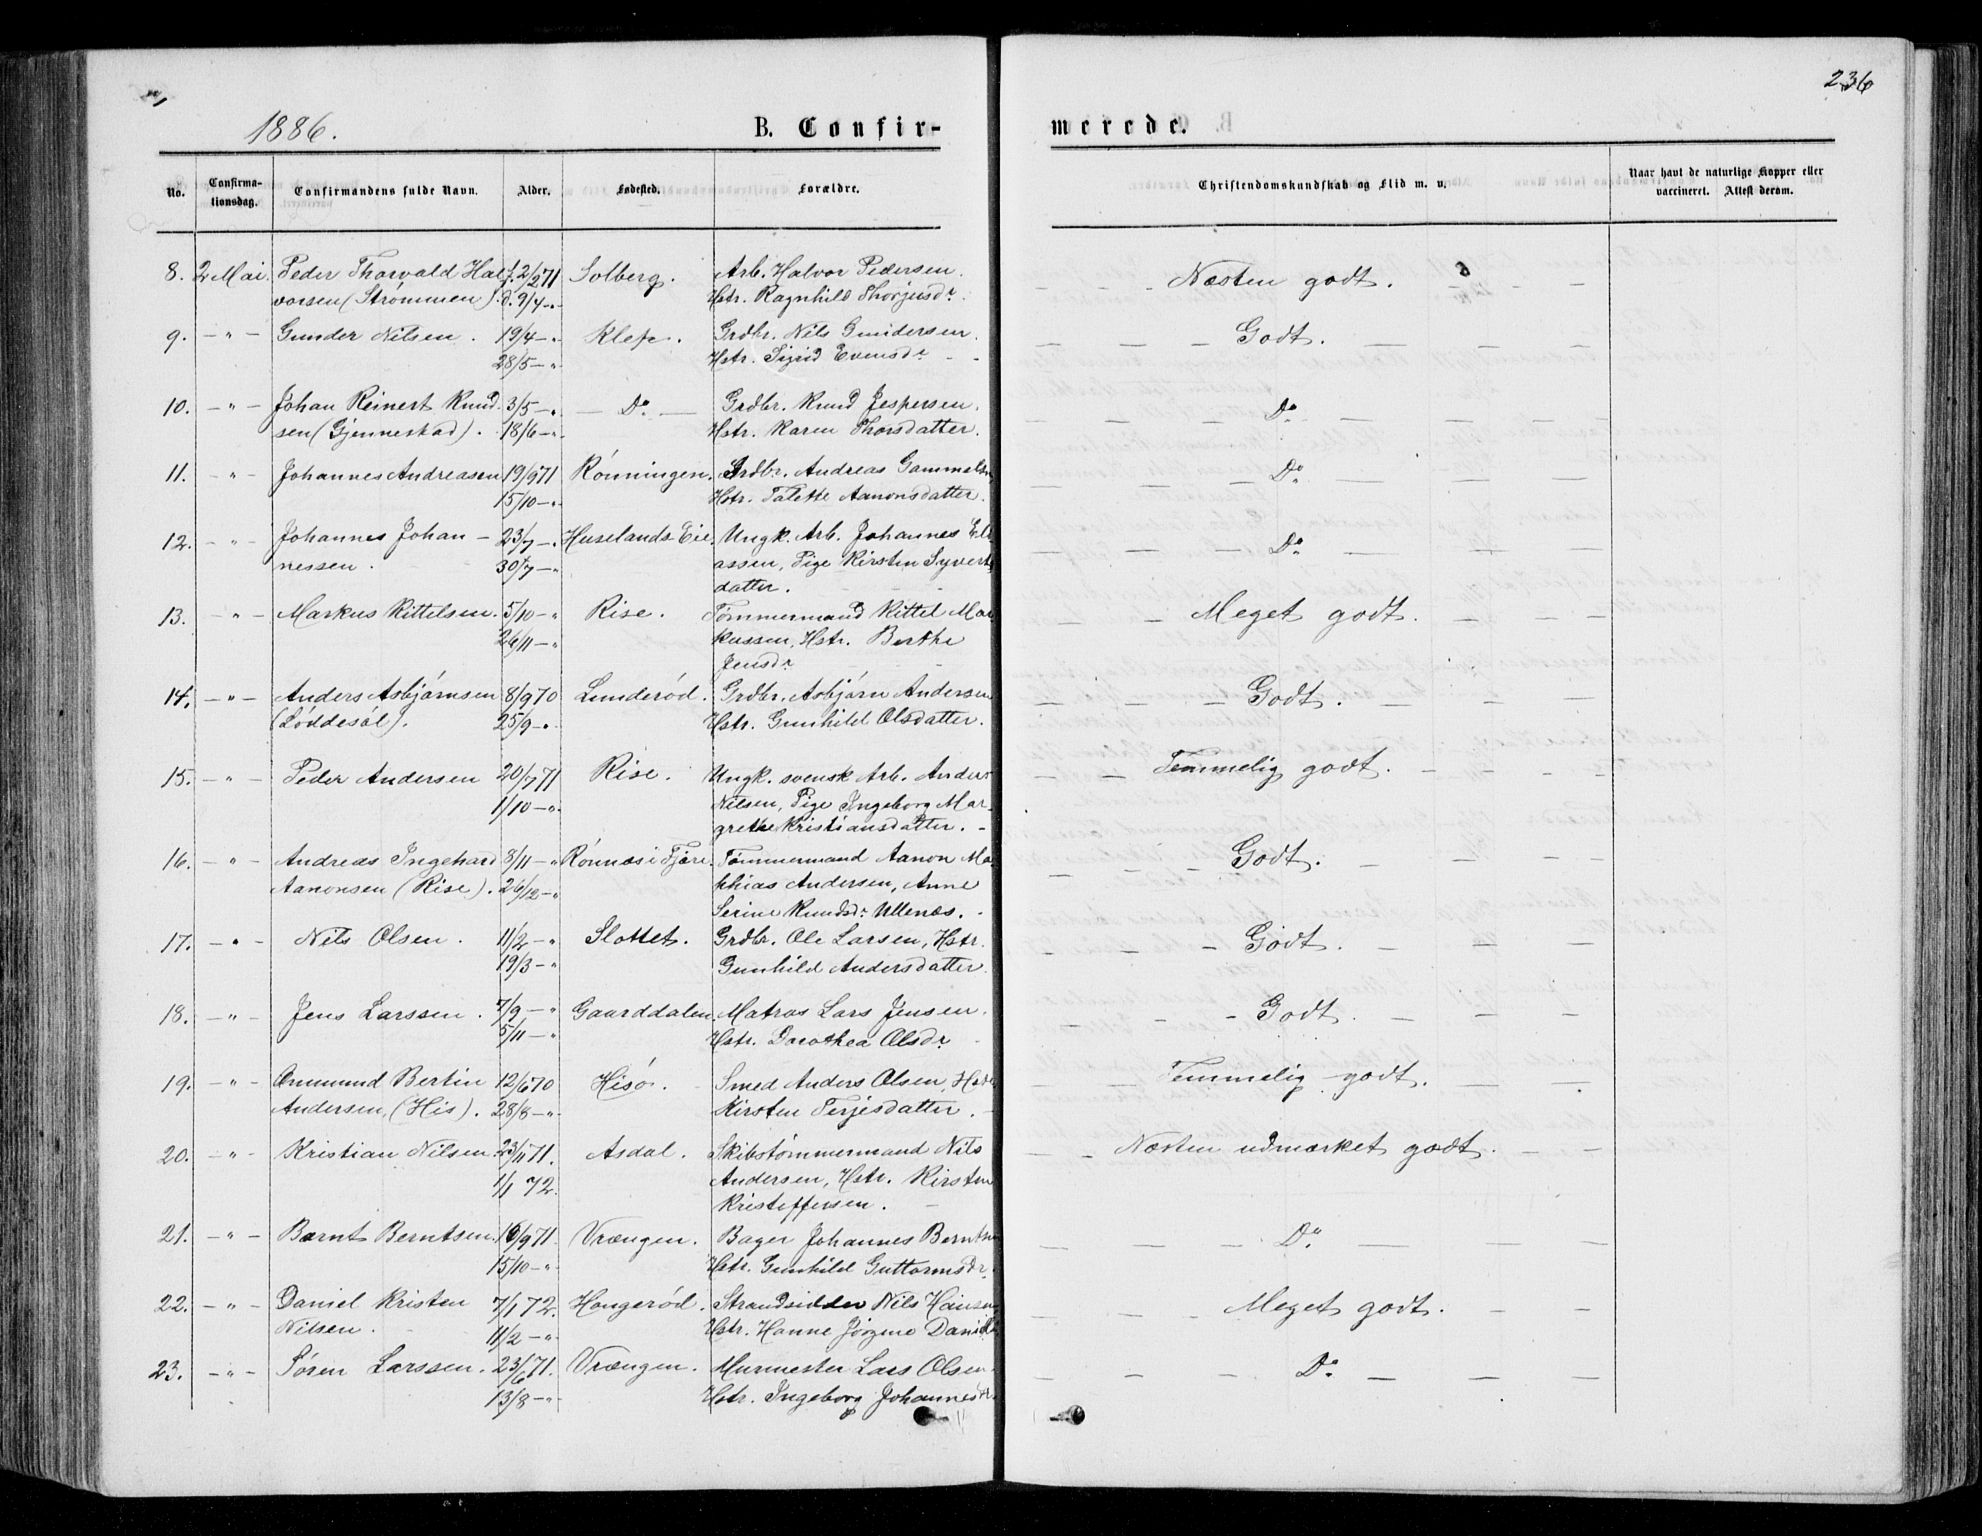 236
1886.
B. Confir-
merede.
No.
Confirma-
tionsdag.
Confirmandens fulde Navn.
Alder.
Fødested.
Forældre.
Christendomskundskab og Flid m. v.
Naar havt de naturlige Kopper eller
vaccineret. Attest derom.
8. 2 Mai. Peder Thorvald Hal f. 2/2 71 Solberg. Arb. Halvor Pedersen. Næsten godt.
vorsen (Strømmen). d. 9/4 -"- Hstr. Ragnhild Thorjusdr.
9. - " - Gunder Nilsen. 19/4 -"- Klep. Grdbr. Nils Gundersen. Godt.
28/5 -"- Hstr. Sigrid Evensdr
10. - " - Johan Reinert Knud 3/5 -"- Do Grdbr. Knud Jespersen. Do
sen (Gjennestad). 18/6 -"- Hstr. Karen Thorsdatter.
11. - " - Johannes Andreasen 19/9 71 Rønningen. Grdbr. Andreas Gammelsen Do
15/10 -"- Hstr. Talette Aanonsdatter.
12. - " - Johannes Johan- 23/7 -"- Huselands Eie. Ungk. Arb. Johannes Eli Do
nessen. 30/7 -"- assen, Pige Kirsten Syverts
datter.
13. - " - Markus Kittelsen. 5/10 -"- Rise. Tømmermand Kittel Mar Meget godt.
26/11 -"- kussen, Hstr. Berthe
Jensdr
14. - " - Anders Asbjørnsen 8/9 70 Lunderød. Grdbr. Asbjørn Andersen Godt.
(Løddesøl). 25/9 -"- Hstr. Gunhild Olsdatter.
15. - " - Peder Andersen 20/7 71 Rise. Ungk. svensk Arb. Anders Temmelig godt.
1/10 -"- Nilsen, Pige Ingeborg Mar-
grethe Kristiansdatter.
16. - " - Andreas Ingehard 8/11 -"- Rønnæs i Fjære. Tømmermand Aanon Ma- Godt.
Aanonsen (Rise). 26/12 -"- thias Andersen, Anne
Serine Knudsdr. Ullenæs.
17. - " - Nils Olsen. 11/2 -"- Slottet. Grdbr. Ole Larsen, Hstr. Godt.
19/3 -"- Gunhild Andersdatter.
18. - " - Jens Larssen. 7/9 -"- Gaarddalen. Matros Lars Jensen. Godt.
5/11 -"- Hstr. Dorothea Olsdr
19. - " - Ommund Bertin 12/6 70 Hisø. Smed Anders Olsen, Hstr. Temmelig godt.
Andersen, (His). 28/8 -"- Kirsten Terjesdatter.
20. - " - Kristian Nilsen. 23/11 71. Asdal. Skibstømmermand Nils Næsten udmærket godt.
1/1 72. Andersen, Hstr. Kirsten
Kristoffersen.
21. - " - Bærnt Berntsen. 16/9 71 Vrængen. Bager Johannes Berntsen Do
15/10 -"- Hstr. Gunhild Guttormsdr.
22. - " - Daniel Kristen 7/1 72. Haugerød. Strandsidder Nils Hansen, Meget godt.
Nilsen. 11/2 -"- Hstr. Hanne Jørgine Daniels
23. - " - Søren Larssen. 23/6 71. Vrængen. Murmester Lars Olsen. Do
13/8 -"- Hstr. Ingeborg Johannesdr.